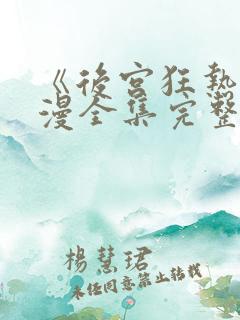 《後宮狂熱
漫全集完整
楊慧珺
未經同意禁止轉載